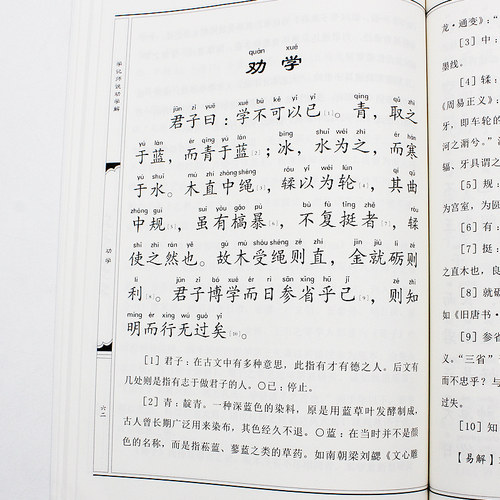 quàn xué
劝学
jūn zǐ yuē xué bù kě yǐ yǐ qīng qǔ zhī
君子曰：学不可以已[1]。青，取之
yú lán ér qīng yú lán bīng shuǐ wéi zhī ér hán
于蓝，而青于蓝[2]；冰，水为之，而寒
yú shuǐ mù zhí zhòng shéng róu yǐ wéi lún qí qū
于水。木直中绳[3]，輮以为轮[4]，其曲
zhòng guī suī yòu gǎo pù bù fù tǐng zhě róu
中规[5]，虽有槁暴[6]，不复挺者[7]，輮
shǐ zhī rán yě gù mù shòu shéng zé zhí jīn jiù lì zé
使之然也。故木受绳则直，金就砺则
lì jūn zǐ bó xué ér rì sān xǐng hū jǐ zé zhī
利[8]。君子博学而日参省乎己[9]，则知
míng ér xíng wú guò yǐ
明而行无过矣[10]。
[1] 君子：在古文中有多种意思，此指有才有德之人。后文有
几处则是指有志于做君子的人。〇已：停止。
[2] 青：靛青。一种深蓝色的染料，原是用蓝草叶发酵制成，
古人曾长期广泛用来染布，其色经久不退。〇蓝：在当时并不是颜
色的名称，而是指菘蓝、蓼蓝之类的草药。如南朝梁刘勰《文心雕
劝学
六二
龙·通变》：“
[3] 中：
墨线。
[4] 輮：
《周易正义》：
牙，即车轮的
河之湄兮。”
辐、牙具谓之
[5] 规：
为宫室，为圆
[6] 有：
[7] 挺：
之直木也，良
[8] 就砺
如《旧唐书·
[9] 参省
义，“三省”
而不忠乎？与
过失。
[10] 知
【易解】